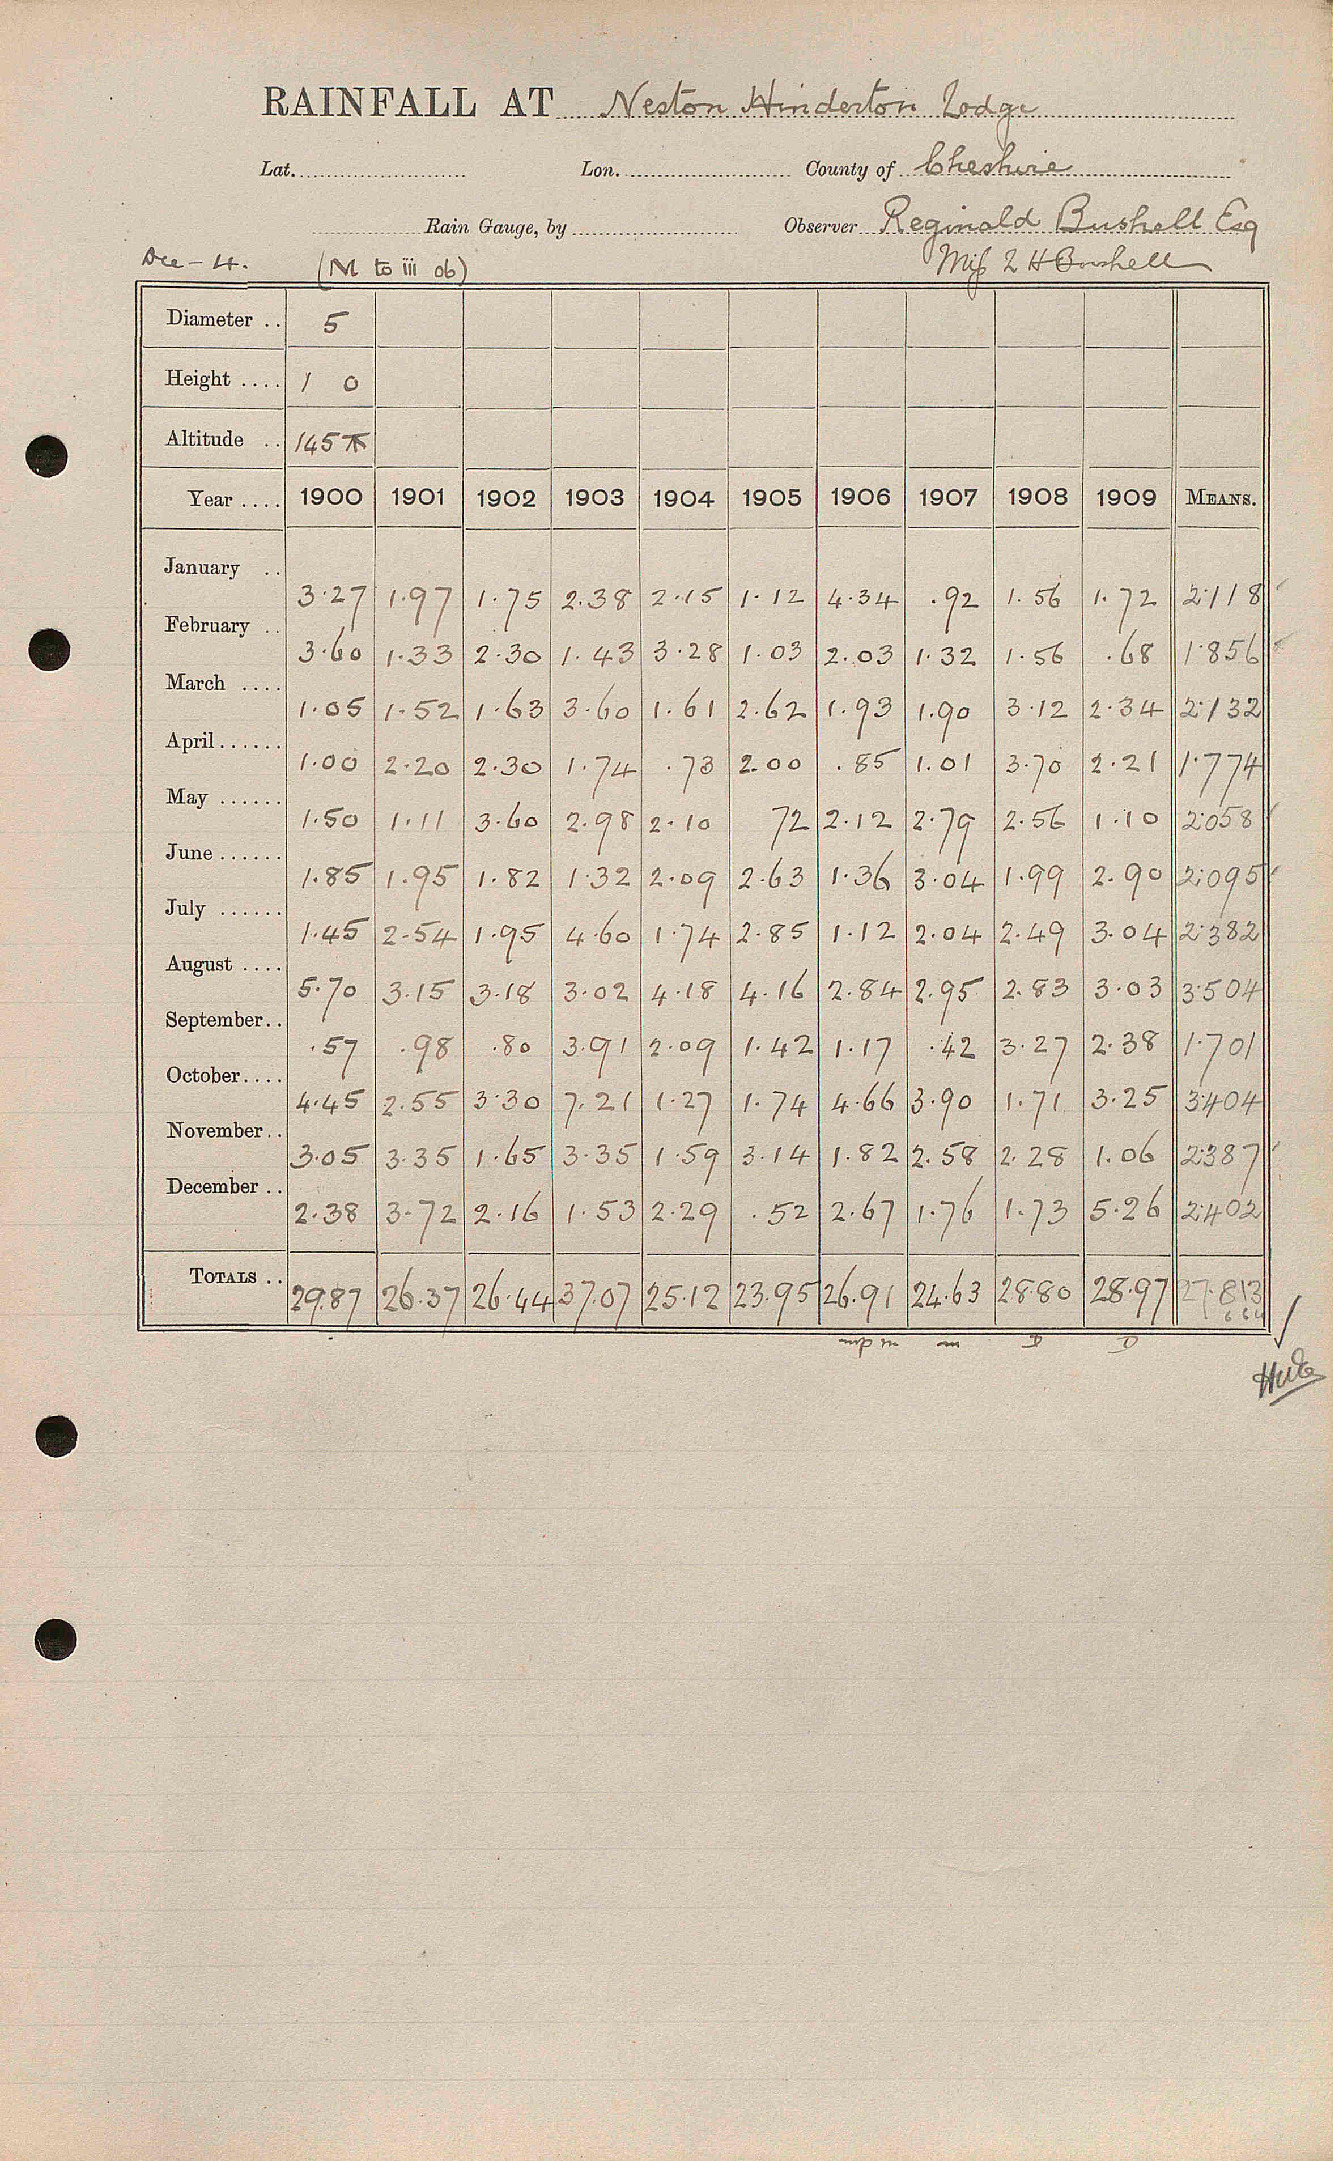 RAINFALL AT Neston Hinderton Lodge
Lat. Lon. County of Cheshire
Rain Gauge, by Observer Reginald Bushell Esq
Dec - 4. (M to iii 06) Miss L H Bushell
Diameter .. 5
Height .... 1 0
Altitude .. 145
Year .... 1900 1901 1902 1903 1904 1905 1906 1907 1908 1909 MEANS.
January .. 3.27 1.97 1.75 2.38 2.15 1.12 4.34 .92 1.56 1.72 2.118
February .. 3.60 1.33 2.30 1.43 3.28 1.03 2.03 1.32 1.56 .68 1.856
March .... 1.05 1.52 1.63 3.60 1.61 2.62 1.93 1.90 3.12 2.34 2.132
April...... 1.00 2.20 2.30 1.74 .73 2.00 .85 1.01 3.70 2.21 1.774
May ...... 1.50 1.11 3.60 2.98 2.10 72 2.12 2.79 2.56 1.10 2.058
June...... 1.85 1.95 1.82 1.32 2.09 2.63 1.36 3.04 1.99 2.90 2.095
July ...... 1.45 2.54 1.95 4.60 1.74 2.85 1.12 2.04 2.49 3.04 2.382
August .... 5.70 3.15 3.18 3.02 4.18 4.16 2.84 2.95 2.83 3.03 3.504
September.. .57 .98 .80 3.91 2.09 1.42 1.17 .42 3.27 2.38 1.701
October.... 4.45 2.55 3.30 7.21 1.27 1.74 4.66 3.90 1.71 3.25 3.404
November.. 3.05 3.35 1.65 3.35 1.59 3.14 1.82 2.58 2.28 1.06 2.387
December .. 2.38 3.72 2.16 1.53 2.29 .52 2.67 1.76 1.73 5.26 2.402
TOTALS .. 29.87 26.37 26.44 37.07 25.12 23.95 26.91 24.63 28.80 28.97 27.813